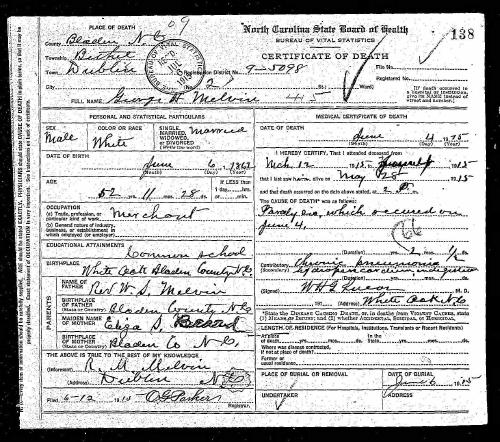 09
138
North Carolina State Board of Health
BUREAU OF VITAL STATISTICS
CERTIFICATE OF DEATH
PLACE OF DEATH
County Bladen N C
Township Bethel
Dublin
BUREAU OF VITAL STATISTICS
Registration District No. 9-5098
File No.
Registered No.
City
[If death occurred in a hospital or institution, give its NAME instead of street and number.]
FULL NAME George H Melvin 45
PERSONAL AND STATISTICAL PARTICULARS
SEX
Male
COLOR OR RACE
White
SINGLE, MARRIED, WIDOWED, OR DIVORCED
(Write the word)
Married
DATE OF BIRTH
June 6 1862
(Month) (Day) (Year)
AGE
52 yrs. 11 mos. 28 ds.
If LESS than 1 day, hrs. or min.
OCCUPATION
(a) Trade, profession, or particular kind of work
Merchant
(b) General nature of industry, business, or establishment in which employed (or employer)
EDUCATIONAL ATTAINMENTS
Common school
BIRTHPLACE
(State or Country)
White Oak Bladen County N.C.
PARENTS
NAME OF FATHER
Rev W. S. Melvin
BIRTHPLACE OF FATHER
(State or Country)
Bladen County N C
MAIDEN NAME OF MOTHER
Eliza S.
BIRTHPLACE OF MOTHER
(State or Country)
Bladen Co N C,
THE ABOVE IS TRUE TO THE BEST OF MY KNOWLEDGE
(Informant) R. M. Melvin
(Address) Dublin N C
Filed 6-12 1915 O G Parker
Registrar.
MEDICAL CERTIFICATE OF DEATH
DATE OF DEATH
June 4 1915
(Month) (Day) (Year)
I HEREBY CERTIFY, That I attended deceased from
Mch 12 1915, to 1915
that I last saw him alive on May 28 1915
and that death occurred on the date stated above, at 2
The CAUSE OF DEATH* was as follows:
Paralysis, which occured on
June 4,
66
(Duration) yrs. 2 mos. ds.
Contributory Chronic pneumonia
(Secondary)
(Signed) W H G Lucas
191 (Address) White Oak N.C.
*State the DISEASE CAUSING DEATH, or, in deaths from VIOLENT CAUSES, state (1) MEANS OF INJURY; and (2) whether ACCIDENTAL, SUICIDAL, OR HOMICIDAL.
LENGTH OF RESIDENCE (For Hospitals, Institutions, Transients or Recent Residents)
Where was disease contracted,
if not at place of death?
Former or usual residence
PLACE OF BURIAL OR REMOVAL
DATE OF BURIAL
June 6 1915
UNDERTAKER
ADDRESS